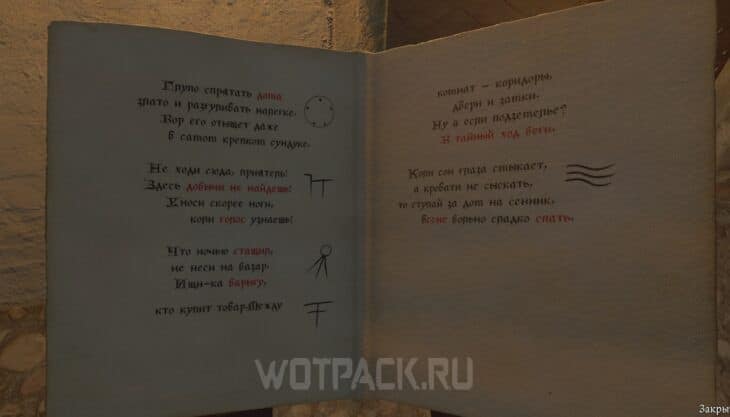 Глупо спрятать дома
злато и разгуливать налегке.
Вор его отыщет даже
в самом крепком сундуке.
Не ходи сюда, приятель!
Здесь добычи не найдешь!
Уноси скорее ноги,
коли голос узнаешь!
Что ночью стащил,
не неси на базар.
Ищи-ка барыгу,
кто купит товар.Между
комнат – коридоры,
двери и замки.
Ну а если подземелье?
В тайный ход беги.
Коли сон глаза смыкает,
а кровати не сыскать,
то ступай за дом на сенник,
в сене вольно сладко спать.
WOTPACK.RU
Закры